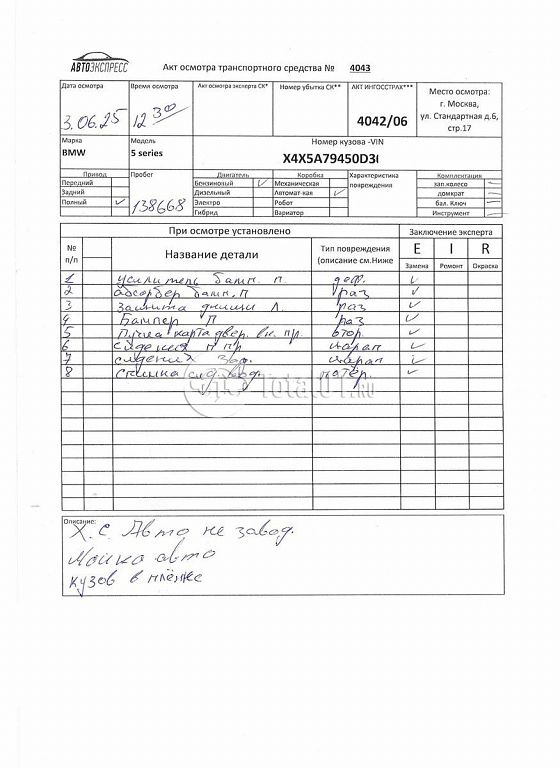 АВТОЭКСПРЕСС
Акт осмотра транспортного средства № 4043
Дата осмотра Время осмотра Акт осмотра эксперта СК* Номер убытка СК** АКТ ИНГОССТРАХ*** Место осмотра:
3.06.25 12 30 4042/06 г. Москва,
ул. Стандартная д.6,
стр.17
Марка Модель Номер кузова -VIN
BMW 5 series X4X5A79450D3
Привод Пробег Двигатель Коробка Характеристика повреждения Комплектация
Передний Бензиновый ✓ Механическая зап.колесо ✓
Задний Дизельный Автомат-кая ✓ домкрат —
Полный ✓ 138668 Электро Робот бал. Ключ ✓
Гибрид Вариатор Инструмент —
При осмотре установлено Заключение эксперта
№ п/п Название детали Тип повреждения (описание см.Ниже E I R
Замена Ремонт Окраска
1 усилитель бамп. п. деф. ✓
2 абсорбер бамп. П раз ✓
3 Защита днища Л раз ✓
4 Бампер П раз ✓
5 карта двер. вн. пр. ✓
6 сидения п пр царап ✓
7 сидения зад. царап ✓
8 спинка сид. зад. потёр. ✓
Total01.RU
Описание:
Х.С. Авто не завод.
Мойка авто
кузов в плёнке